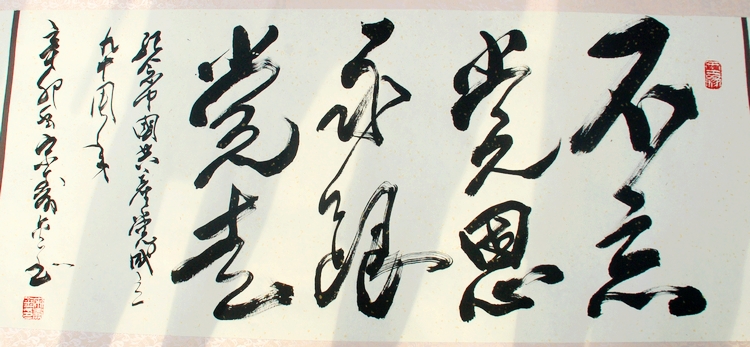 不忘
党恩
永跟
党走
纪念中国共产党成立
九十周年
辛卯
书